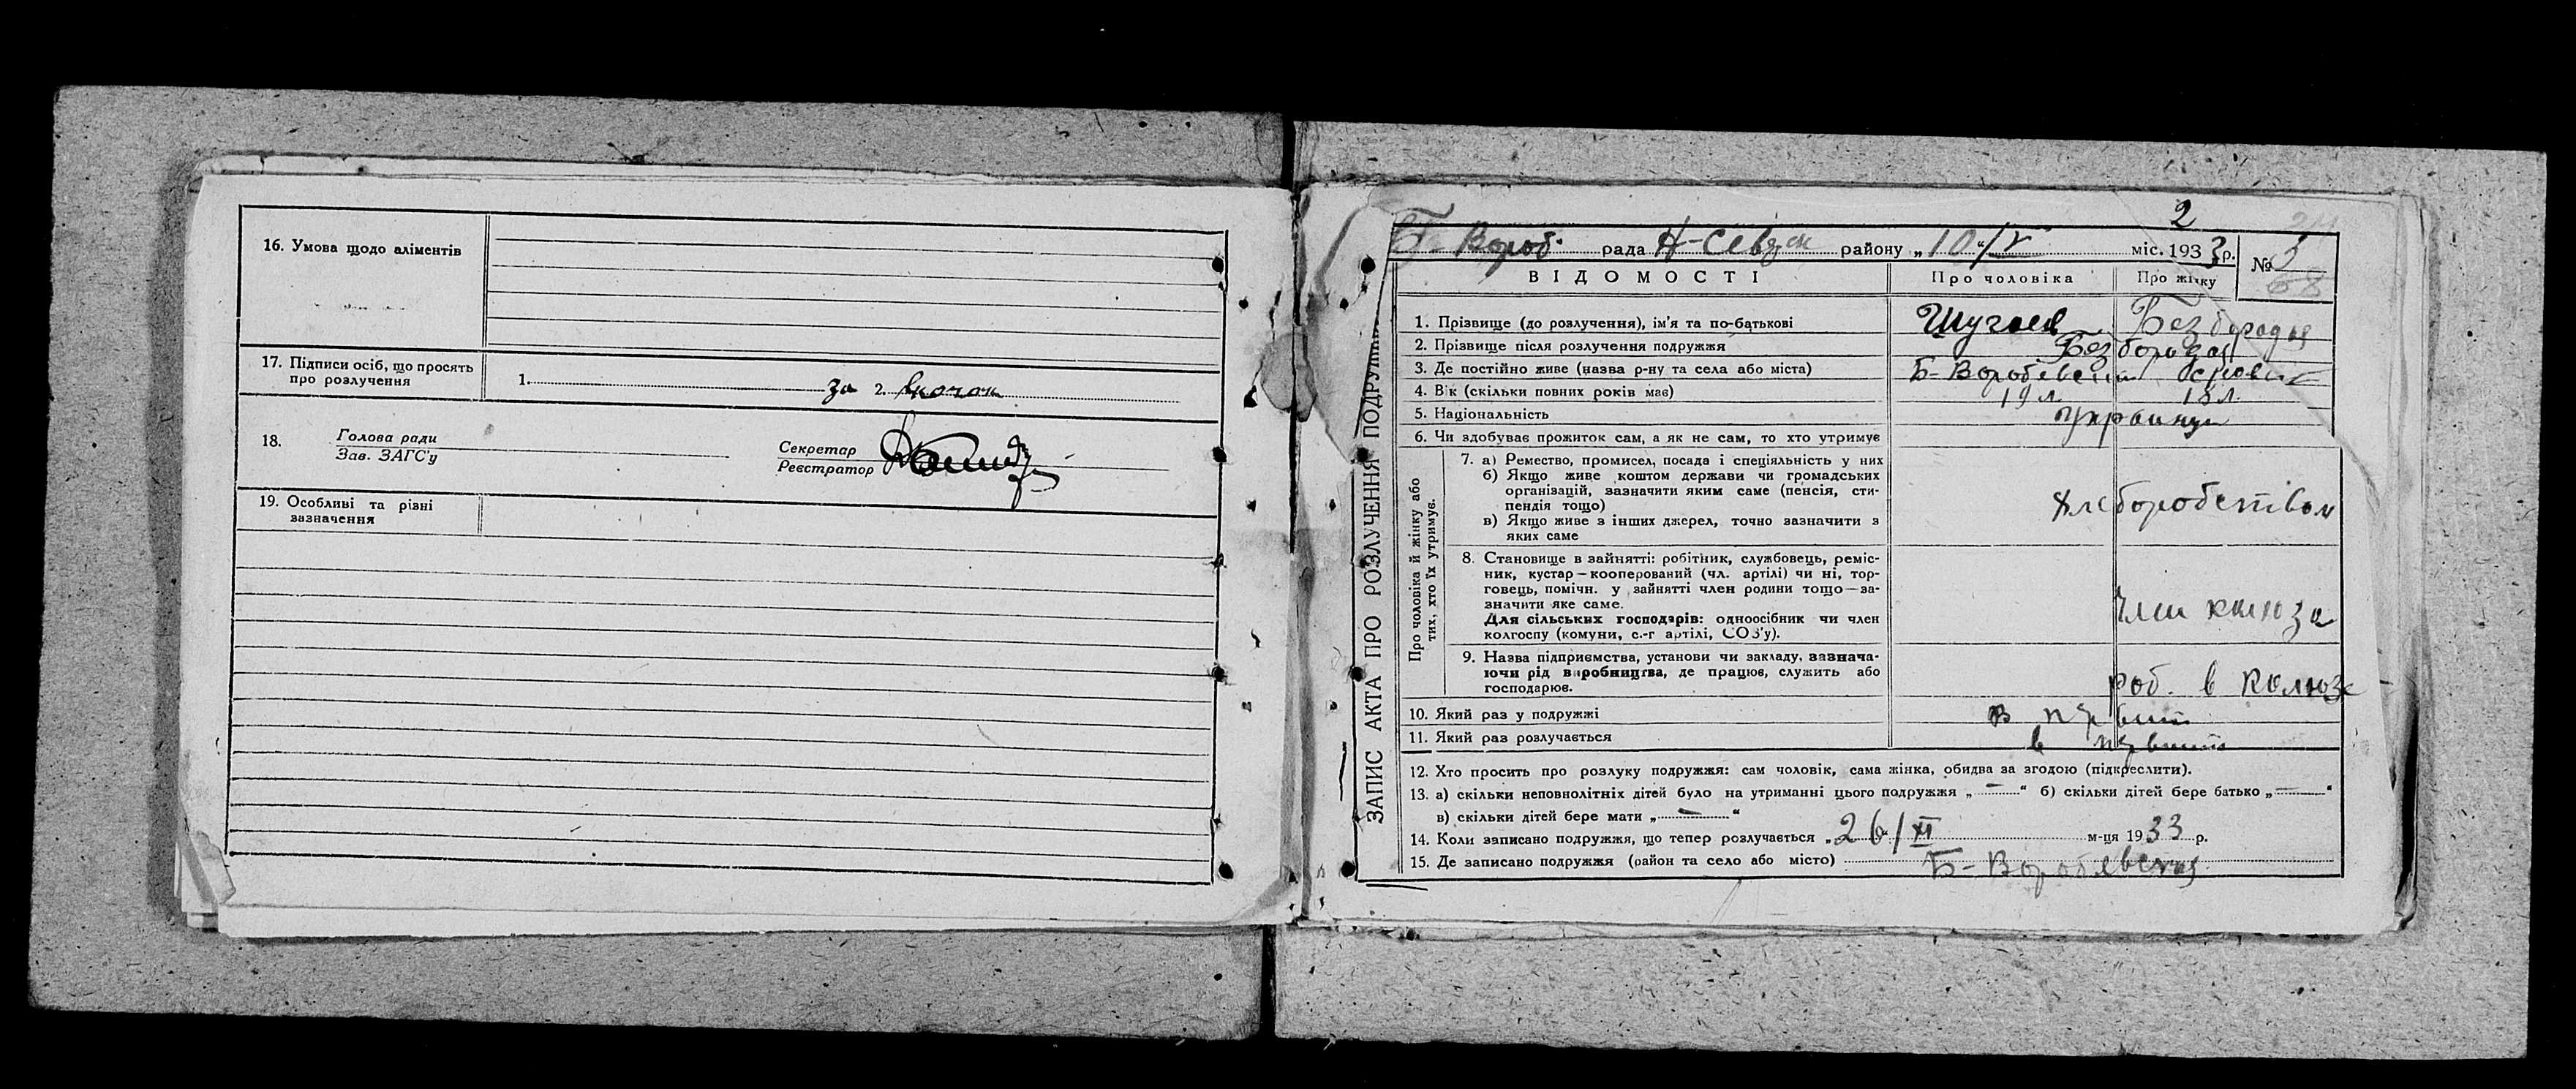 16. Умова щодо аліментів
17. Підписи осіб, що просять
про розлучення
1. за 2.
18. Голова ради
Зав. ЗАГС'у
Секретар
Реєстратор
19. Особливі та різні
зазначення
2
Б-Вороб. рада Н-Сівер район у „10“/V міс. 1933 р.
№ 3
68
ВІДОМОСТІ Про чоловіка Про жінку
ЗАПИС АКТА ПРО РОЗЛУЧЕННЯ ПОДРУЖЖЯ
1. Прізвище (до розлучення), ім'я та по-батькові Безбородая
2. Прізвище після розлучення подружжя Безбородая
3. Де постійно живе (назва р-ну та села або міста) Б-Воробьевский
4. Вік (скільки повних років має) 19 л. 18 л.
5. Національність Украинци
6. Чи здобуває прожиток сам, а як не сам, то хто утримує
Про чоловіка й жінку або
тих, хто їх утримує.
7. а) Ремество, промисел, посада і спеціяльність у них
б) Якщо живе коштом держави чи громадських
організацій, зазначити яким саме (пенсія, сти-
пендія тощо)
в) Якщо живе з інших джерел, точно зазначити з
яких саме
Хлеборобством
8. Становище в зайнятті: робітник, службовець, реміс-
ник, кустар—кооперований (чл. артілі) чи ні, тор-
говець, помічн. у зайнятті член родини тощо—за-
значити яке саме.
Для сільських господарів: одноосібник чи член
колгоспу (комуни, с.-г артілі, СОЗ'у).
член колхоза
9. Назва підприємства, установи чи закладу, зазнача-
ючи рід виробництва, де працює, служить або
господарює.
роб. в колхозе
10. Який раз у подружжі в первый
11. Який раз розлучається в первый
12. Хто просить про розлуку подружжя: сам чоловік, сама жінка, обидва за згодою (підкреслити).
13. а) скільки неповнолітніх дітей було на утриманні цього подружжя „ — “ б) скільки дітей бере батько „ — “
в) скільки дітей бере мати „ — “
14. Коли записано подружжя, що тепер розлучається „26“/XI м-ця 1933 р.
15. Де записано подружжя (район та село або місто) Б-Воробьевская